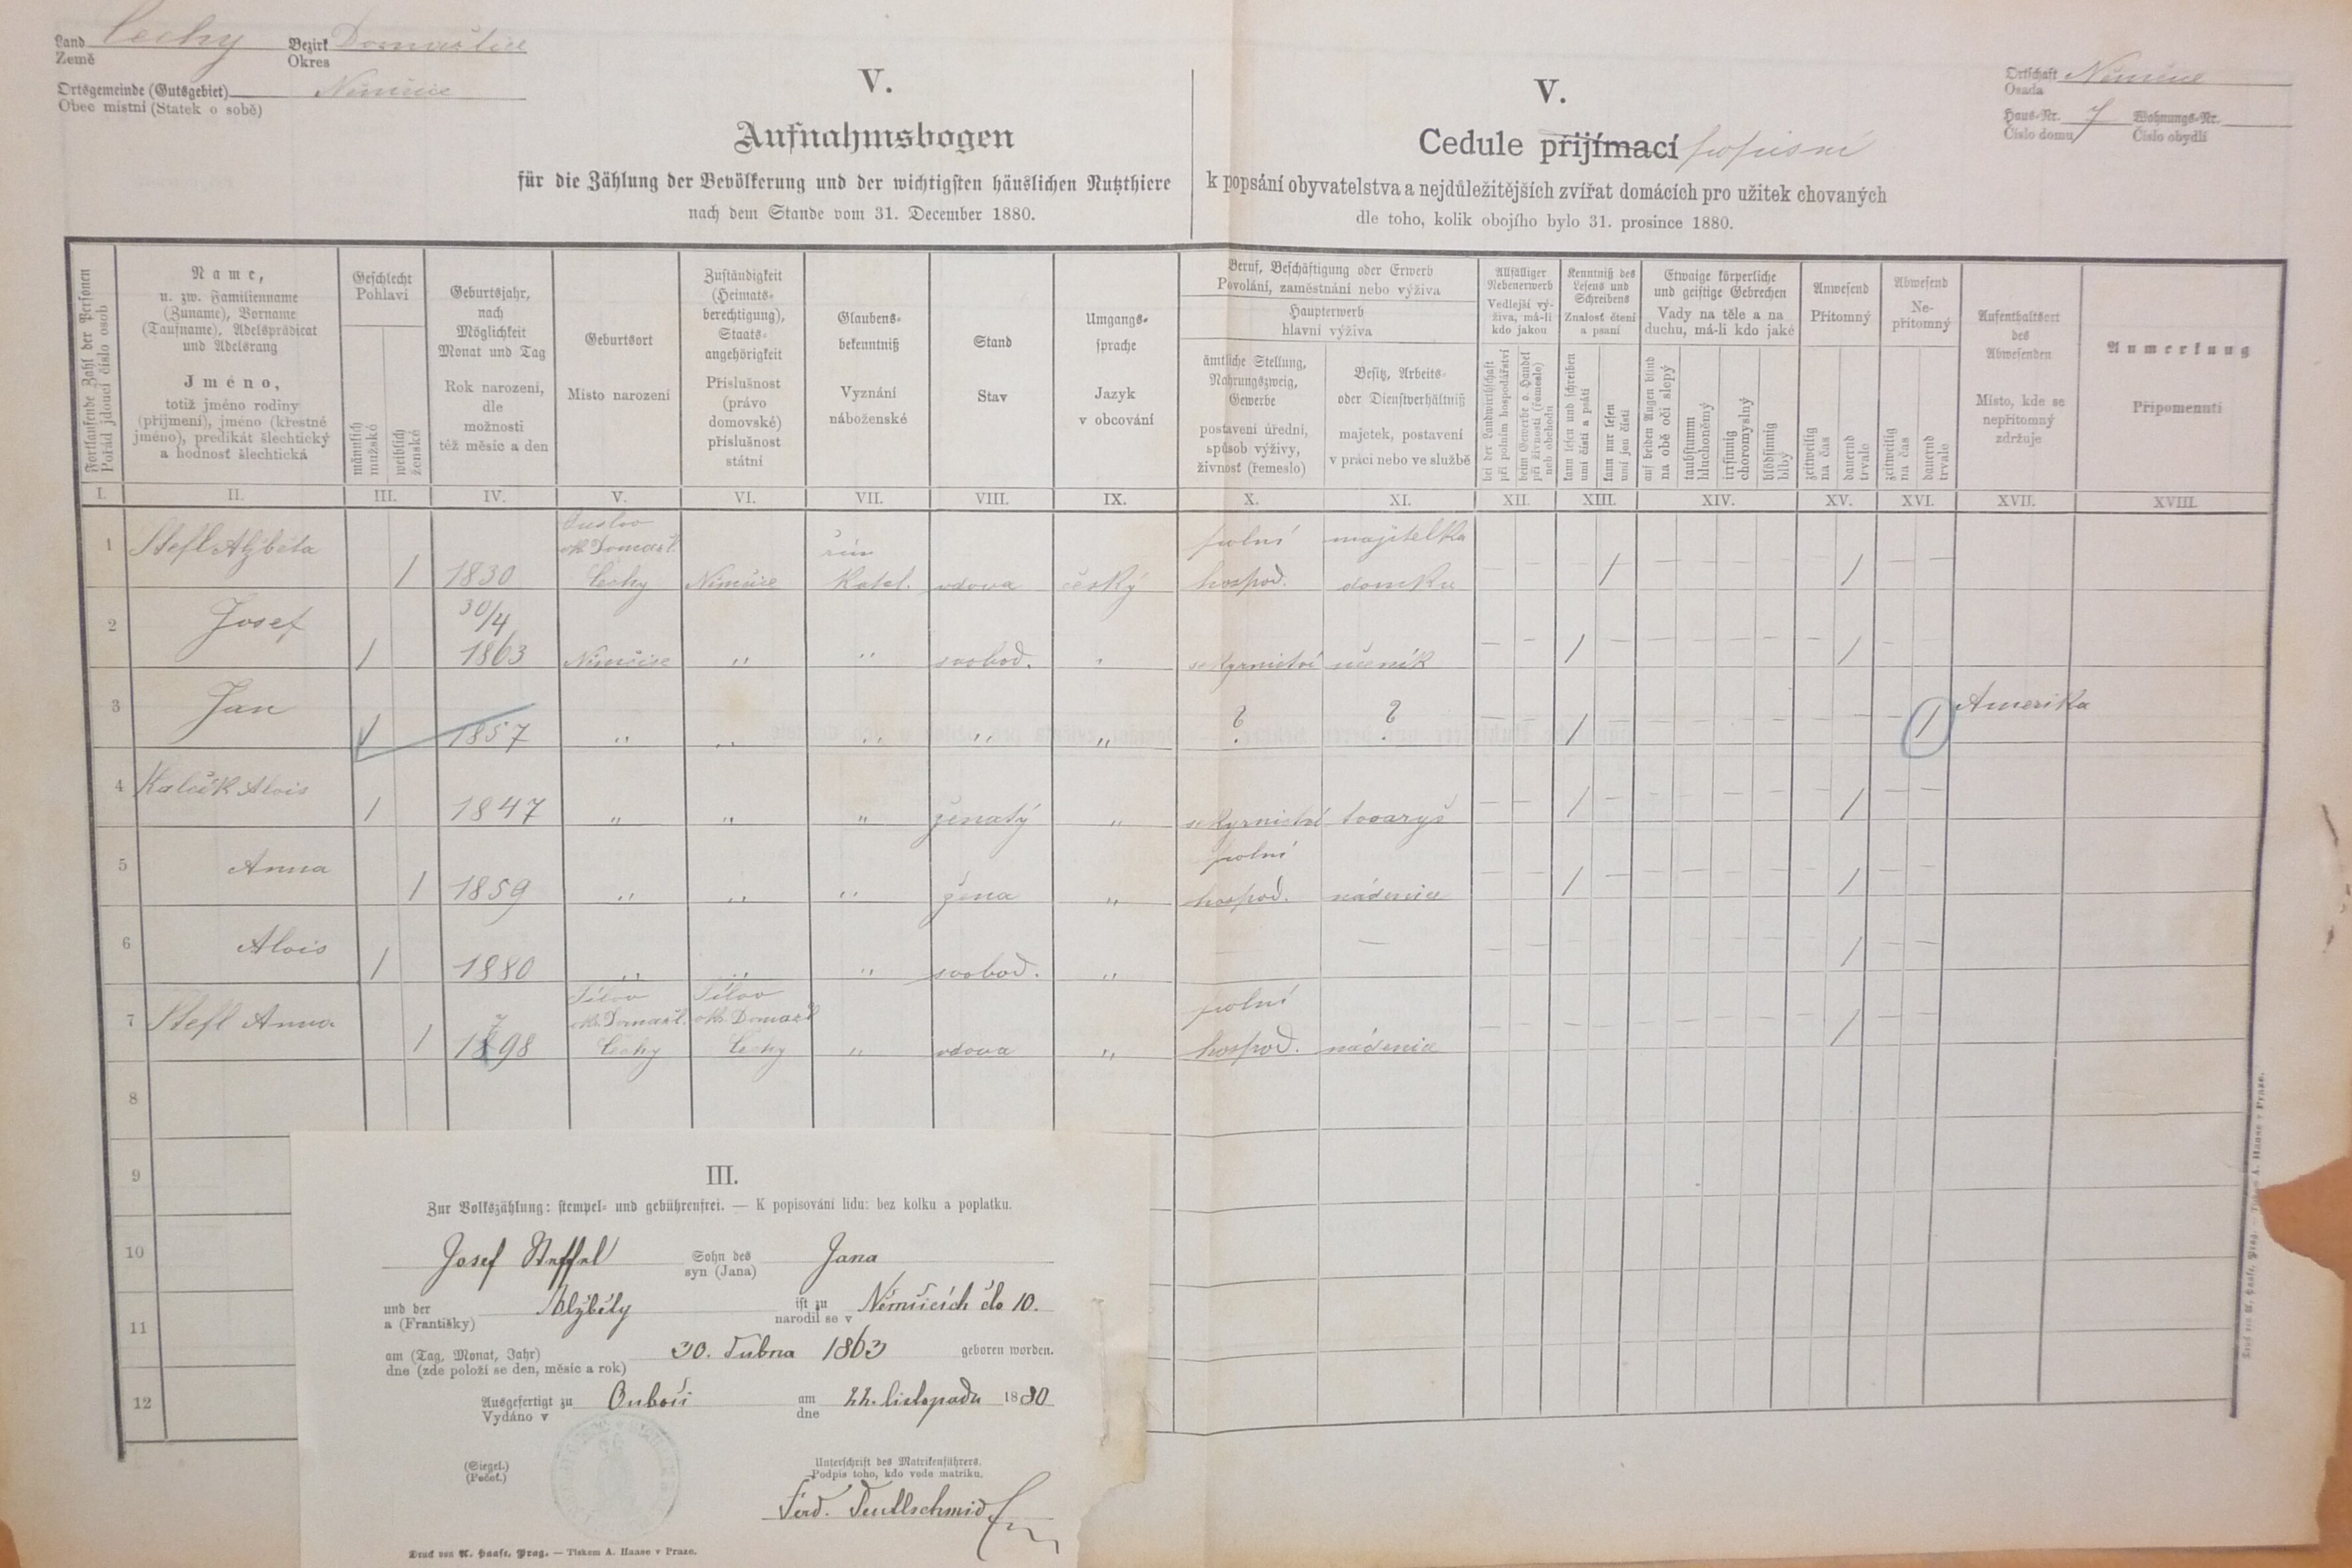 Land Čechy Bezirk Domažlice
Země Okres
Ortsgemeinde (Gutsgebiet) Němčice
Obec místní (Statek o sobě)
Ortschaft Němčice
Osada
Haus-Nr. 7 Wohnungs-Nr.
Číslo domu Číslo obydlí
V.
Aufnahmsbogen
für die Zählung der Bevölkerung und der wichtigsten häuslichen Nutzthiere
nach dem Stande vom 31. December 1880.
V.
Cedule přijímací popisní
k popsání obyvatelstva a nejdůležitějších zvířat domácích pro užitek chovaných
dle toho, kolik obojího bylo 31. prosince 1880.
Fortlaufende Zahl der Personen
Pořád jdoucí číslo osob
Name,
u. zw. Familienname
(Zuname), Vorname
(Taufname), Adelsprädicat
und Adelsrang
Jméno,
totiž jméno rodiny
(příjmení), jméno (křestné
jméno), predikát šlechtický
a hodnosť šlechtická
Geschlecht
Pohlaví
männlich
mužské
weiblich
ženské
Geburtsjahr,
nach
Möglichkeit
Monat und Tag
Rok narození,
dle
možnosti
též měsíc a den
Geburtsort
Místo narození
Zuständigkeit
(Heimats-
berechtigung),
Staats-
angehörigkeit
Příslušnost
(právo
domovské)
příslušnost
státní
Glaubens-
bekenntniß
Vyznání
náboženské
Stand
Stav
Umgangs-
sprache
Jazyk
v obcování
Beruf, Beschäftigung oder Erwerb
Povolání, zaměstnání nebo výživa
Haupterwerb
hlavní výživa
ämtliche Stellung,
Nahrungszweig,
Gewerbe
postavení úřední,
spůsob výživy,
živnosť (řemeslo)
Besitz, Arbeits-
oder Dienstverhältniß
majetek, postavení
v práci nebo ve službě
Allfälliger
Nebenerwerb
Vedlejší vý-
živa, má-li
kdo jakou
bei der Landwirthschaft
při polním hospodářství
beim Gewerbe o. Handel
při živnosti (řemesle)
neb obchodu
Kenntniß des
Lesens und
Schreibens
Znalosť čtení
a psaní
kann lesen und schreiben
umí čísti a psáti
kann nur lesen
umí jen čísti
Etwaige körperliche
und geistige Gebrechen
Vady na těle a na
duchu, má-li kdo jaké
auf beiden Augen blind
na obě oči slepý
taubstumm
hluchoněmý
irrsinnig
choromyslný
blödsinnig
blbý
Anwesend
Přítomný
zeitweilig
na čas
dauernd
trvale
Abwesend
Ne-
přítomný
zeitweilig
na čas
dauernd
trvale
Aufenthaltsort
des
Abwesenden
Místo, kde se
nepřítomný
zdržuje
Anmerkung
Připomenutí
I. II. III. IV. V. VI. VII. VIII. IX. X. XI. XII. XIII. XIV. XV. XVI. XVII. XVIII.
ok. Domažl. řím polní majitelka
1 Štefl Alžběta / 1830 Čechy Němčice katol. vdova český hospod. domku — — / / — —
30/4
2 Josef / 1863 Němčice " " svobod. " sekyrnictví učeník — — / — — — — — — / — —
3 Jan / 1857 " " " " " ? ? — — / — — — — — — — — / Amerika
4 Kalčík Alois / 1847 " " " ženatý " sekyrnictví tovaryš — — / — — — — — — / — —
polní
5 Anna / 1859 " " " žena " hospod. nádenice — — / — — — — — — / — —
6 Alois / 1880 " " " svobod. " — — — — — — — — — — — / — —
ok. Domažl. ok. Domažl. polní
7 Štefl Anna / 1798 Čechy Čechy " vdova " hospod. nádenice — — — — — — — — — / — —
8
9
10
11
12
III.
Zur Volkszählung: stempel- und gebührenfrei. — K popisování lidu: bez kolku a poplatku.
Josef Steffel Sohn des Jana
syn (Jana)
und der Alžběty ist zu Němčicích čís 10.
a (Františky) narodil se v
am (Tag, Monat, Jahr) 30. dubna 1863 geboren worden.
dne (zde položí se den, měsíc a rok)
Ausgefertigt zu Ouboči am 22. listopadu 1880
Vydáno v dne
(Siegel.)
(Pečeť.)
Unterschrift des Matrikenführers.
Podpis toho, kdo vede matriku.
Ferd. Teutlschmid
Druck von A. Haase, Prag. — Tiskem A. Haase v Praze.
Druck von A. Haase, Prag. — Tiskem A. Haase v Praze.